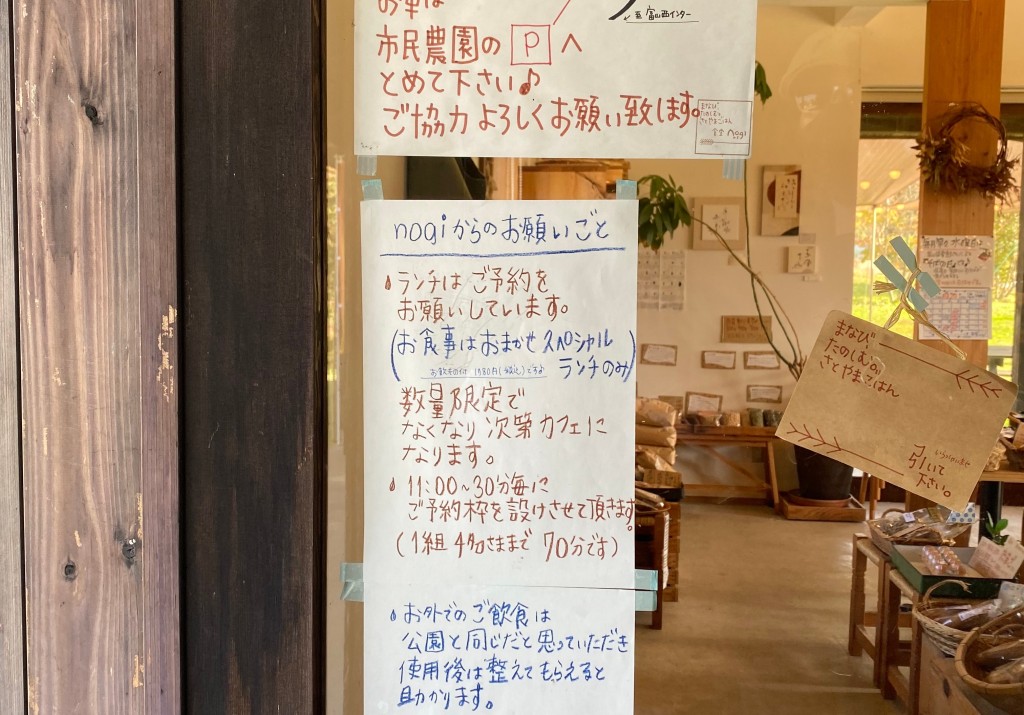 お車は
至 富山西インター
市民農園の P へ
とめて下さい♪
ご協力よろしくお願い致します。
まなび
たのしむ。
さとやまごはん
nogi
nogiからのお願いごと
ランチはご予約を
お願いしています。
(お食事はおまかせスペシャル
ランチのみ)
お飲みもの付 1980円(税込)です♪
数量限定で
なくなり次第カフェに
なります。
11:00~30分毎に
ご予約枠を設けさせて頂きます。
(1組4名さままで 70分です)
お外でのご飲食は
公園と同じだと思っていただき
使用後は整えてもらえると
助かります。
まなび
たのしむ。
さとやまごはん
引いて
下さい。